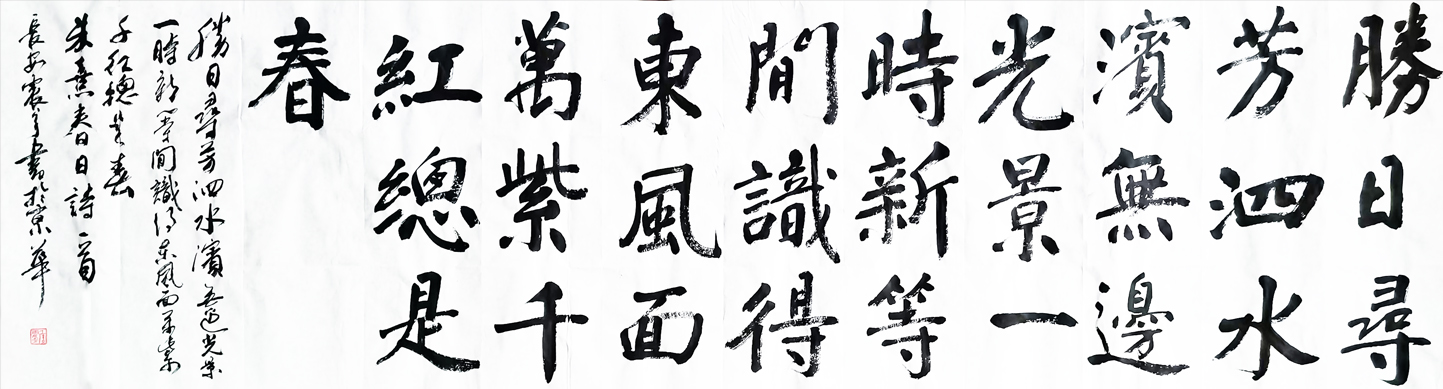 勝日尋
芳泗水
濱無邊
光景一
時新等
間識得
東風面
萬紫千
紅總是
春
勝日尋芳泗水濱無邊光景
一時新等間識得東風面萬紫
千紅總是春
朱熹春日詩一首
長安
書於京華